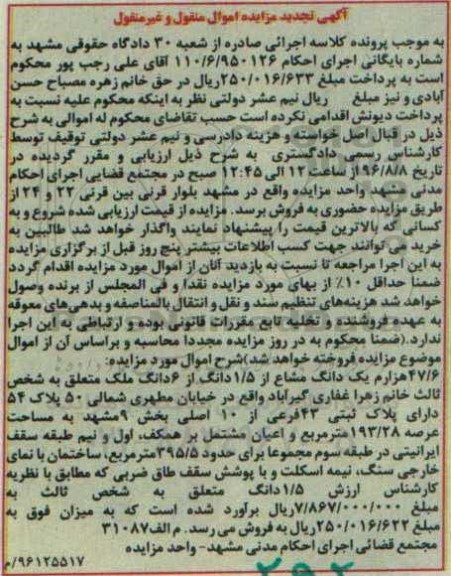 آگهی تجدید مزایده اموال منقول و غیرمنقول
به موجب پرونده کلاسه اجرائی صادره از شعبه ۳۰ دادگاه حقوقی مشهد به
شماره بایگانی اجرای احکام ۱۱۰/۶/۹۵۰۱۲۶ آقای علی رجب پور محکوم
است به پرداخت مبلغ ۲۵۰/۰۱۶/۶۳۳ریال در حق خانم زهره مصباح حسن
آبادی و نیز مبلغ ریال نیم عشر دولتی نظر به اینکه محکوم علیه نسبت به
پرداخت دیونش اقدامی نکرده است حسب تقاضای محکوم له اموالی به شرح
ذیل در قبال اصل خواسته و هزینه دادرسی و نیم عشر دولتی توقیف توسط
کارشناس رسمی دادگستری به شرح ذیل ارزیابی و مقرر گردیده در
تاریخ ۹۶/۸/۸ از ساعت ۱۲ الی ۱۲:۴۵ صبح در مجتمع قضایی اجرای احکام
مدنی مشهد واحد مزایده واقع در مشهد بلوار قرنی بین قرنی ۲۲ و ۲۴ از
طریق مزایده حضوری به فروش برسد. مزایده از قیمت ارزیابی شده شروع و به
کسانی که بالاترین قیمت را پیشنهاد نمایند واگذار خواهد شد طالبین به
خرید می توانند جهت کسب اطلاعات بیشتر پنج روز قبل از برگزاری مزایده
به این اجرا مراجعه تا نسبت به بازدید آنان از اموال مورد مزایده اقدام گردد
ضمنا حداقل ۱۰٪ از بهای مورد مزایده نقدا و فی المجلس از برنده وصول
خواهد شد هزینه‌های تنظیم سند و نقل و انتقال بالمناصفه و بدهی‌های معوقه
به عهده فروشنده و تخلیه تابع مقررات قانونی بوده و ارتباطی به این اجرا
ندارد.(ضمنا محکوم به در روز مزایده مجددا محاسبه و براساس آن از اموال
موضوع مزایده فروخته خواهد شد)شرح اموال مورد مزایده:
۴۷/۶هزارم یک دانگ مشاع از ۱/۵دانگ از ۶دانگ ملک متعلق به شخص
ثالث خانم زهرا غفاری گیرآباد واقع در خیابان مطهری شمالی ۵۰ پلاک ۵۴
دارای پلاک ثبتی ۴۳فرعی از ۱۰ اصلی بخش ۹مشهد به مساحت
عرصه ۱۹۳/۲۸مترمربع و اعیان مشتمل بر همکف، اول و نیم طبقه سقف
ایرانیتی در طبقه سوم مجموعا برای حدود ۳۹۵/۵مترمربع، ساختمان با نمای
خارجی سنگ، نیمه اسکلت و با پوشش سقف طاق ضربی که مطابق با نظریه
کارشناس ارزش ۱/۵دانگ متعلق به شخص ثالث به
مبلغ ۷/۸۶۷/۰۰۰/۰۰۰ریال برآورد شده است که به میزان فوق به
مبلغ ۲۵۰/۰۱۶/۶۲۲ریال به فروش می رسد. م الف۳۱۰۸۷
مجتمع قضائی اجرای احکام مدنی مشهد- واحد مزایده
۹۶۱۲۵۵۱۷/م